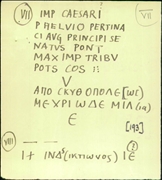 VII VII
IMP CAESARI
P HELVIO PERTINA
CI AVG PRINCIPI SE
NATVS PONT
MAX IMP TRIBV
POTS COS II
V
ΑΠΟ ϹΚΥΘΟΠΟΛΕ[ως]
ΜΕΧΡΙ ѠΔΕ ΜΙΛ(ια)
Ε
[193]
VIII
Ι+ ΙΝΔ(ικτιωνος) ΙΕ